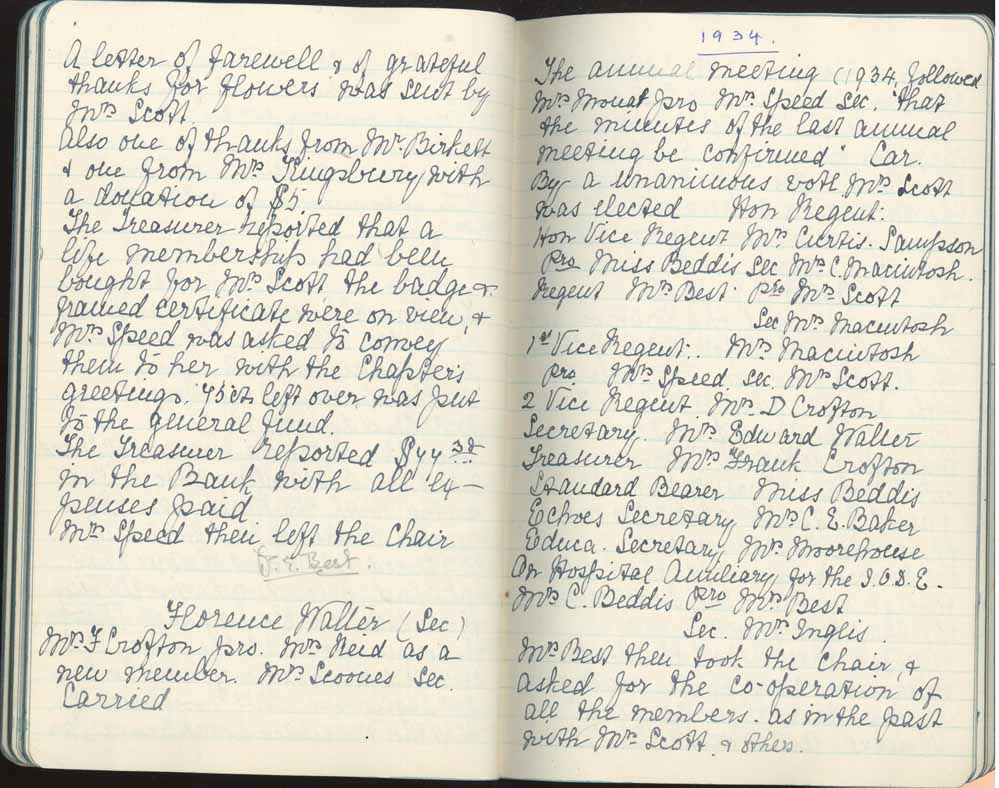 A letter of farewell & of grateful
thanks for flowers was sent by
Mrs Scott.
Also one of thanks from Mr. Birkett
& one from Mrs Kingsbury with
a donation of $5
The Treasurer reported that a
life membership had been
bought for Mrs Scott the badge &
framed certificate were on view, &
Mrs Speed was asked to convey
them to her with the Chapters
greetings. 75cts left over was put
to the general fund.
The Treasurer reported
in the Bank with all ex-
penses paid
Mrs Speed then left the Chair
Best.
Florence Walter (Sec)
Mrs F Crofton pro. Mrs Reid as a
new member. Mrs Scoones Sec.
Carried
1934.
The annual meeting (1934, followed
Mrs Mouat pro Mrs Speed Sec. "that
the minutes of the last annual
meeting be confirmed" Car.
By a unanimous vote Mrs Scott
was elected Hon Regent:
Hon Vice Regent Mrs Curtis. Sampson
Pro Miss Beddis Sec Mrs C. Macintosh.
Regent Mrs Best Pro Mrs Scott
Sec Mrs Macintosh
1st Vice Regent:. Mrs Macintosh
Pro. Mrs Speed Sec. Mrs Scott.
2 Vice Regent. Mrs D Crofton
Secretary. Mrs Edward Walter
Treasurer Mrs Frank Crofton
Standard Bearer Miss Beddis
Echoes Secretary Mrs C. E. Baker
Educa. Secretary, Mrs Moorehouse
On Hospital Auxiliary for the I.O.D.E.
Mrs C. Beddis Pro Mrs Best
Sec. Mrs Inglis.
Mrs Best then took the Chair, &
asked for the co-operation of
all the members. as in the past
with Mrs Scott & others.